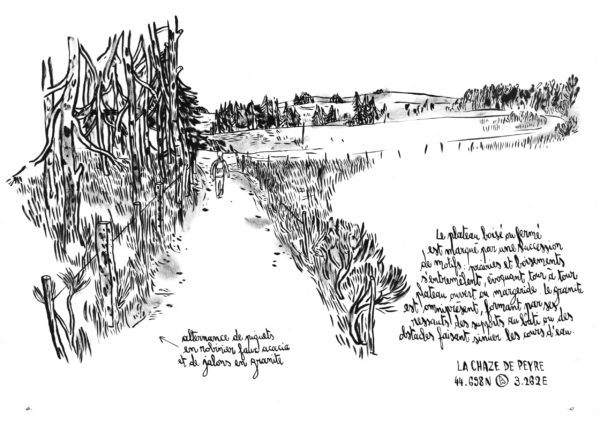 Le plateau boisé ou fermé
est marqué par une succession
de motifs : prairies et boisements
s'entremêlent, évoquant tour à tour
plateau ouvert ou margeride. le granite
est omniprésent, formant par ses
ressauts des supports au bâti ou des
obstacles faisant sinuer les cours d'eau.
alternance de piquets
en robinier faux acacia
et de jalons en granite
LA CHAZE DE PEYRE
44.698N 3.262E